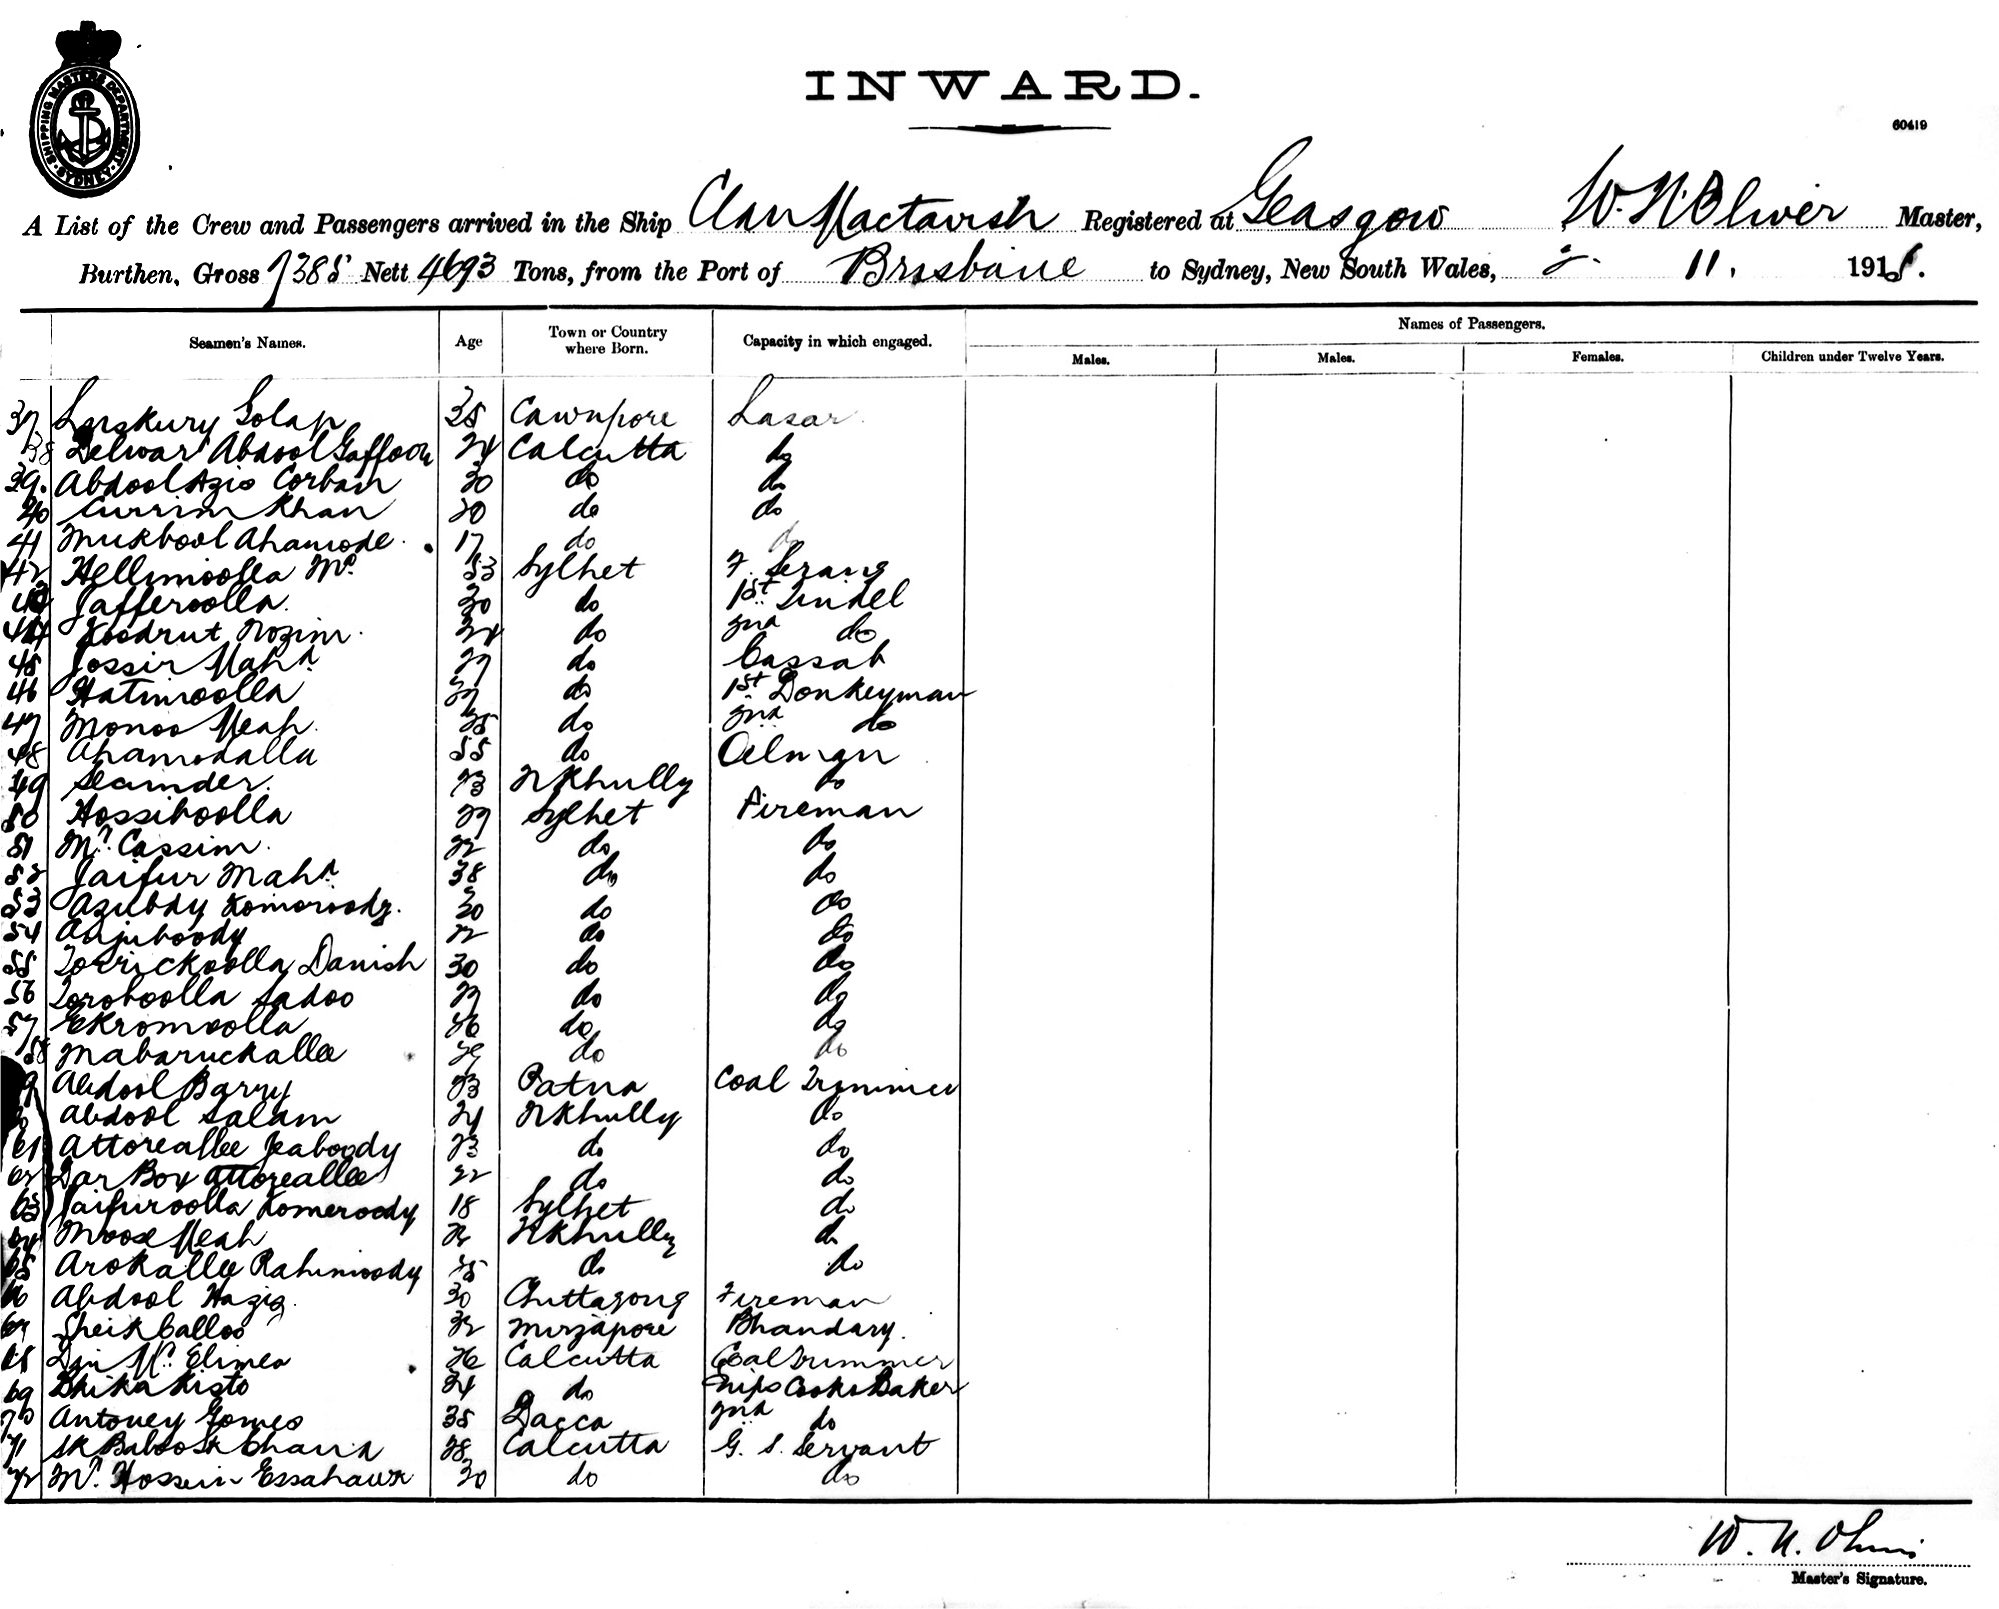 SHIPPING MASTERS DEPARTMENT SYDNEY
INWARD.
60419
A List of the Crew and Passengers arrived in the Ship Clan Mactavish Registered at Glasgow W. N. Oliver Master,
Burthen, Gross 7385 Nett 4693 Tons, from the Port of Brisbane to Sydney, New South Wales, 2. 11. 1915.
Seamen's Names. Age Town or Country where Born. Capacity in which engaged. Names of Passengers.
Males. Males. Females. Children under Twelve Years.
37 Luskury Golap 35 Cawnpore Lasar
38 Delwar Abdool Gaffoor 24 Calcutta do
39. Abdool Azis Corban 30 do do
40 Currim Khan 20 do do
41 Mukbool Ahamode 17 do do
42 Hellimoolla Md. 53 Sylhet F. Serang
43 Jafferoolla 30 do 1st Tindel
44 Koodrut Nozim 24 do 2nd do
45 Jossir Mahd 27 do Cassab
46 Hatimoolla 39 do 1st Donkeyman
47 Monoo Meah 35 do 2nd do
48 Ahamodalla 55 do Oilman
49 Scunder 23 Nkhully do
50 Hossiboolla 29 Sylhet Fireman
51 Md. Cassim 22 do do
52 Jaifur Mahd 38 do do
53 Azubdy Komoroody 30 do do
54 Anjuboody 22 do do
55 Torrickoolla Danish 30 do do
56 Toroboolla Sadoo 29 do do
57 Ekromoolla 46 do do
58 Mabaruckallee 29 do do
9 Abdool Barry 23 Patna Coal Trimmer
Abdool Salam 24 Nkhully do
61 Attoreallee Jeaboody 23 do do
62 Dar Box Attoreallee 22 do do
63 Jaifuroolla Komeroody 18 Sylhet do
64 Moose Meah 22 Nkhully do
65 Arokallee Rahimoody 25 do do
66 Abdool Hazig 30 Chittagong Fireman
67 Sheik Calloo 32 Mirzapore Bhandary.
68 Din Md. Elimea 26 Calcutta Coal Trimmer
69 Bhika Kisto 34 do Ships Cook & Baker
70 Antoney Gomes 35 Dacca 2nd do
71 Sk Baboo Sk Chand 28 Calcutta G. S. Servant
72 Md. Hossein Essahawk 30 do do
W. N. Oliver
Master's Signature.